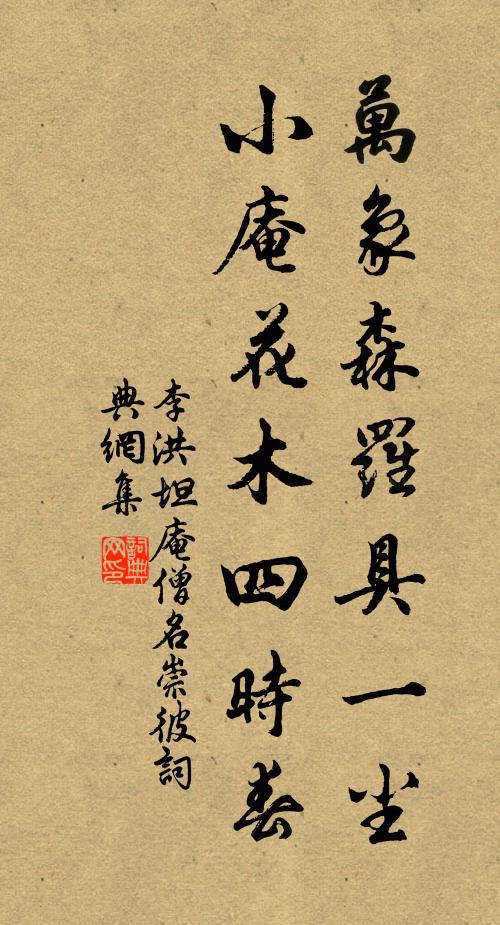 萬象森羅具一尘
小庵花木四時春
李洪坦庵僧名崇彼詞
典網集
詞典
网印